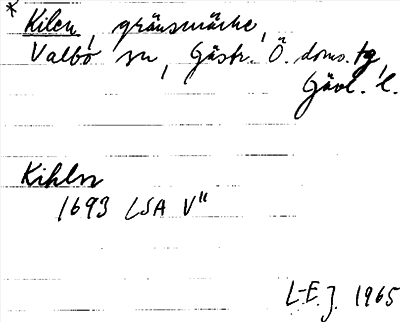 * Kilen, gränsmärke,
Valbo sn, Gästr. Ö. doms. tg,
Gävl. l.
Kihlen
1693 LSA V"
L-E.J. 1965